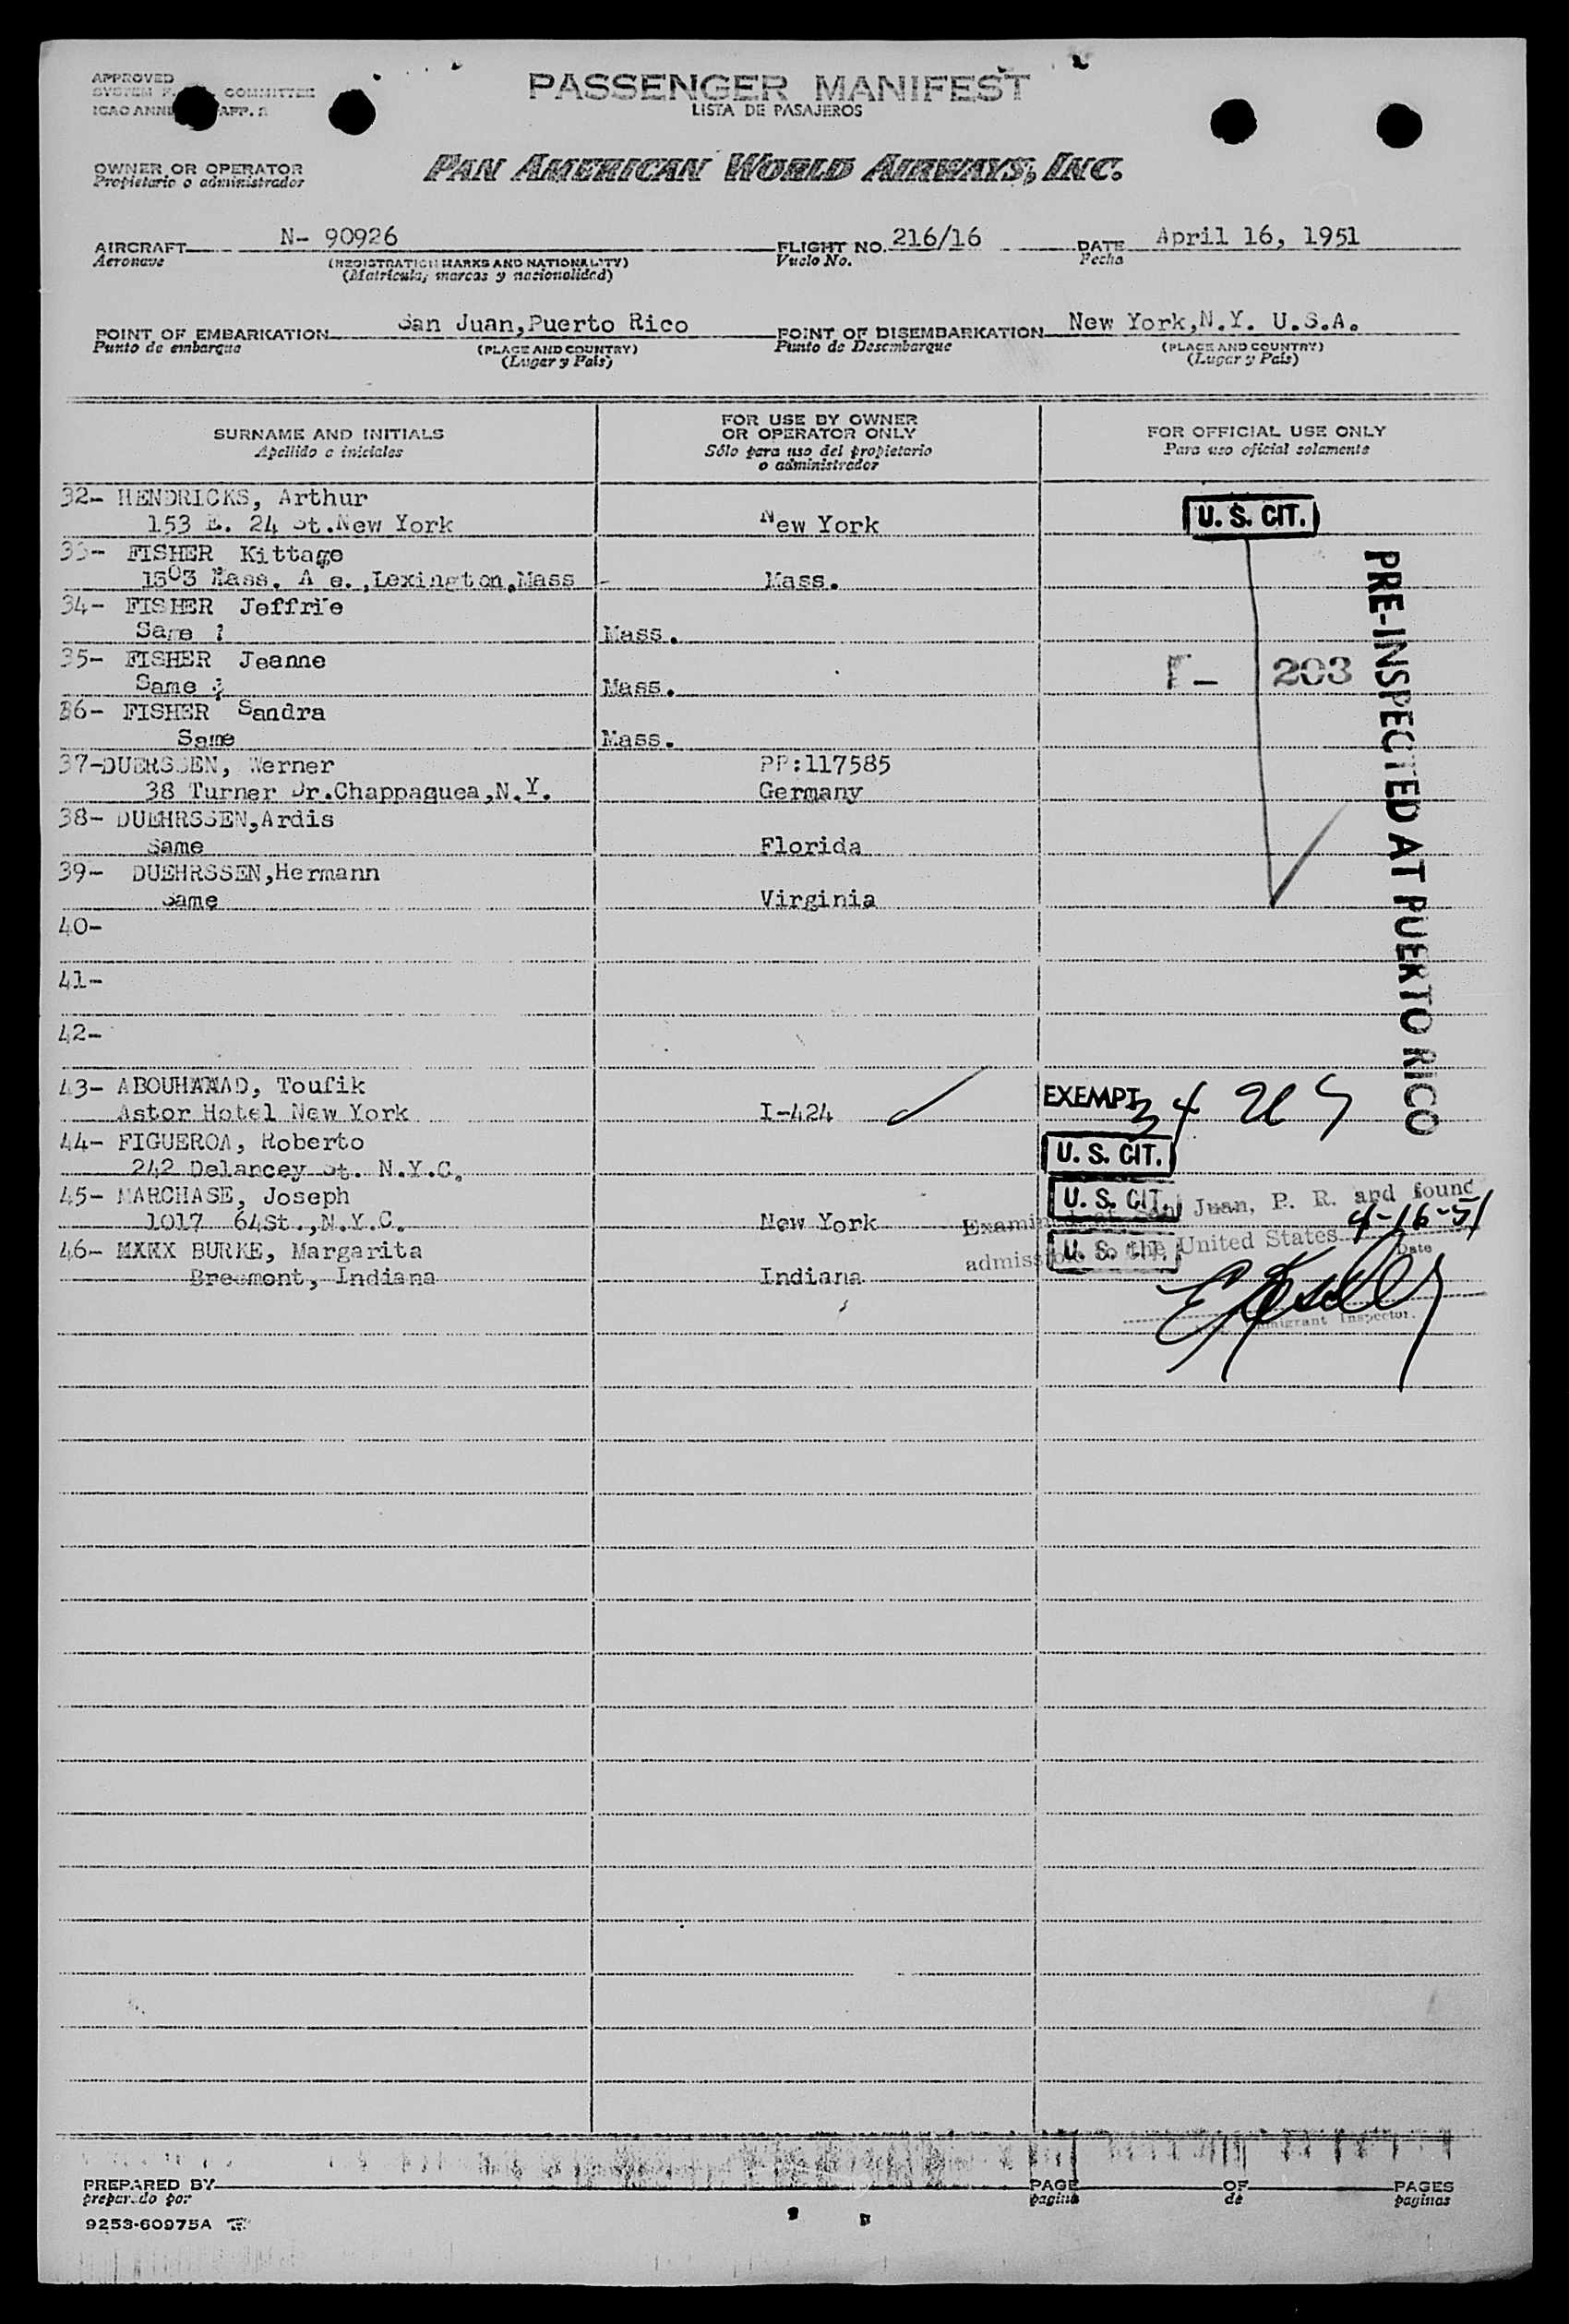 APPROVED
PASSENGER MANIFEST
SYSTEM COMMITTEE
LISTA DE PASAJEROS
ICAO APP. 2
OWNER OR OPERATOR
Propietario o administrador
PAN AMERICAN WORLD AIRWAYS, INC.
AIRCRAFT N- 90926 FLIGHT NO. 216/16 DATE April 16, 1951
Aeronave (REGISTRATION MARKS AND NATIONALITY) Vuelo No. Fecha
(Matricula, marcas y nacionalidad)
POINT OF EMBARKATION San Juan,Puerto Rico POINT OF DISEMBARKATION New York,N.Y. U.S.A.
Punto de embarque (PLACE AND COUNTRY) Punto de Desembarque (PLACE AND COUNTRY)
(Lugar y País) (Lugar y País)
SURNAME AND INITIALS
Apellido e iniciales
FOR USE BY OWNER
OR OPERATOR ONLY
Sólo para uso del propietario
o administrador
FOR OFFICIAL USE ONLY
Para uso oficial solamente
32- HENDRICKS, Arthur
153 E. 24 St.New York New York U. S. CIT.
33- FISHER Kittage
Mass. A e.,Lexington,Mass - Mass.
34- FISHER Jeffrie
Same Mass.
35- FISHER Jeanne
Same Mass. 203
36- FISHER Sandra
Same Mass.
37-DUERSSEN, Werner PP:117585
38 Turner Dr.Chappaguea,N.Y. Germany
38- DUEHRSSEN,Ardis
Same Florida
39- DUEHRSSEN,Hermann
Same Virginia
PRE-INSPECTED AT PUERTO RICO
40-
41-
42-
43- Toufik
Astor Hotel New York I-424 EXEMPT
44- FIGUEROA, Roberto
242 Delancey St. N.Y.C. U. S. CIT.
45- MARCHASE, Joseph
1017 64St.,N.Y.C. New York U. S. CIT.
46- BURKE, Margarita
Indiana Indiana U. S. CIT.
Examined at San Juan, P. R. and found
admiss to the United States 4-16-51
Date
Immigrant Inspector.
PREPARED BY PAGE OF PAGES
preparado por pagina de paginas
9253-60975A